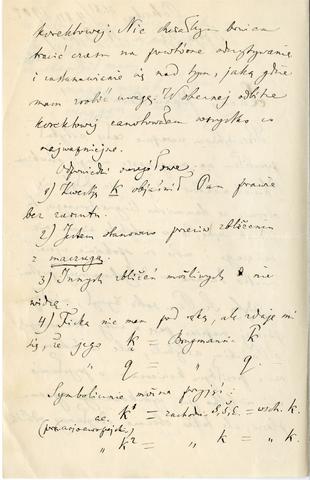 korektowej. Nie chciałbym bowiem
tracić czasu na powtórne odczytywanie
i zastanawianie się nad tym, jaką gdzie
mam zrobić uwagę. W obecnej odbitce
korektowej zanotowałem wszystko co
najważniejsze.
Odpowiedzi szczegółowe.
1) Kwestją k objaśnił Pan prawie
bez zarzutu.
2) Jestem stanowczo przeciw zbliżeniu
z maczugą.
3) Innych zbliżeń możliwych nie
widzę.
4) Ficka nie mam pod ręką, ale zdaje mi
się, że jego k = Brugmann. k̑
" q = " q.
Symbolicznie można przyjąć:
k¹ = zachodn. = wsch. k.
" k² = " k = " k.